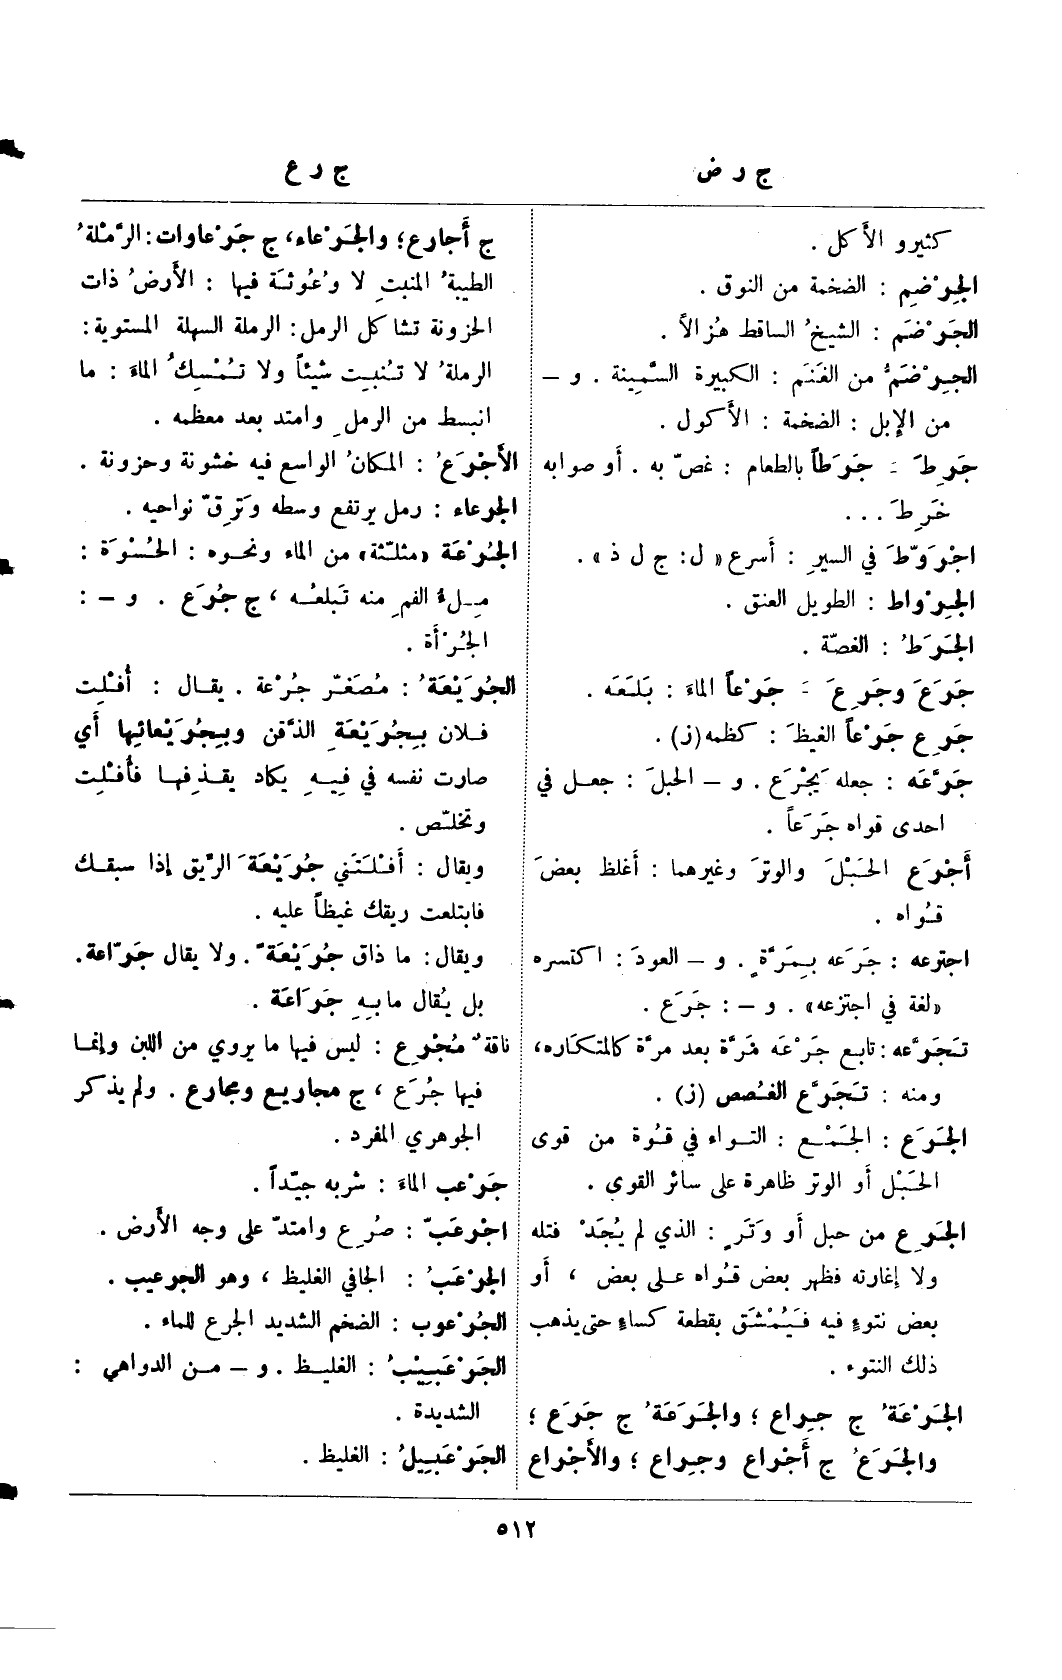 ج ر ض
ج ر ع
كثيرو الأكل .
الجِرْضِم : الضخمة من النوق .
الجَرْضَم : الشيخُ الساقط هُزالاً .
الجِرْضَمُّ من الغَنَم : الكبيرة السَّمِينة . و –
من الإبل : الضخمة : الأكول .
جَرِطَ َ جَرَطاً بالطعام : غصّ به . أو صوابه
خَرِطَ ...
اجْرَوَّطَ في السيرِ : أسرع « ل : ج ل ذ » .
الجِرْواط : الطويل العنق .
الجَرَطُ : الغصّة .
جَرَعَ وجَرِعَ َ جَرْعاً الماءَ : بَلَعَه .
جَرِع جَرْعاً الغيظَ : كظمه (ز) .
جَرَّعَه : جعله يَجْرَع . و – الحبلَ : جعل في
احدى قواه جَرَعاً .
أجْرَع الحَبْلَ والوترَ وغيرهما : أغلظ بعضَ
قُواه .
اجترعه : جَرَعه بِمَرَّةٍ . و – العودَ : اكتسره
«لغة في اجتزعه» . و – : جَرَع .
تَجَرَّعه : تابع جَرْعَه مَرَّة بعد مرَّة كالمتكاره،
ومنه : تَجَرَّع الغُصص (ز) .
الجَرَع : الجَمْع : التواء في قُوة من قوى
الحَبْل أو الوتر ظاهرة على سائر القوى .
الجَرِع من حبل أو وَتَرٍ : الذي لم يُجَدْ فتله
ولا إغارته فظهر بعض قُواه على بعض ، أو
بعض نتوءٍ فيه فَيُمْشَق بقطعة كساءٍ حتى يذهب
ذلك النتوء .
الجَرْعَةُ ج جِراع ؛ والجَرَعَةُ ج جَرَع ؛
والجَرَعُ ج أَجْراع وجِراع ؛ والأجْراع
ج أَجارع؛ والجَرْعاء، ج جَرْعاوات: الرَّمْلةُ
الطيبةُ المنبتِ لا وُعُوثَة فيها : الأرضُ ذات
الحزونة تشاكل الرمل : الرملة السهلة المستوية :
الرملةُ لا تُنبِت شيئاً ولا تُمْسِكُ الماءَ : ما
انبسط من الرملِ وامتد بعد معظمه .
الأجْرَعُ : المكانُ الواسع فيه خشونة وحزونة .
الجرعاء : رمل يرتفع وسطه وتَرِقّ نواحيه .
الجُرْعَة «مثلثة» من الماء ونحوه : الحُسْوَة :
مِلءُ الفمِ منه تَبلعُه ، ج جُرَع . و – :
الجُرْأة .
الجُرَيْعَةُ : مُصَغّر جُرْعة . يقال : أُفْلِت
فلان بِجُرَيْعَةِ الذَّقن وبِجُرَيْعائِها أي
صارت نفسه في فِيهِ يكاد يقذفها فأُفْلِت
وتخلّص .
ويقال : أفْلَتَني جُرَيْعَةَ الرِّيق إذا سبقك
فابتلعت ريقك غيظاً عليه .
ويقال : ما ذاق جُرَيْعَةً . ولا يقال جَرّاعة.
بل يُقال ما بِهِ جَرَاعَة .
ناقةٌ مُجْرِع : ليس فيها ما يروي من اللبن وإنما
فيها جُرَع ، ج مجاريع ومجارع . ولم يذكر
الجوهري المفرد .
جَرْعب الماءَ : شربه جيّداً .
اجْرعَبّ : صُرِع وامتدّ على وجه الأرض .
الجَرْعَبُ : الجافي الغليظ ، وهو الجرعيب .
الجُرْعوب : الضخم الشديد الجرع للماء .
الجَرْعَبِيْبُ : الغليظ . و – من الدواهي :
الشديدة .
الجَرْعَبِيلُ : الغليظ .
٥١٢